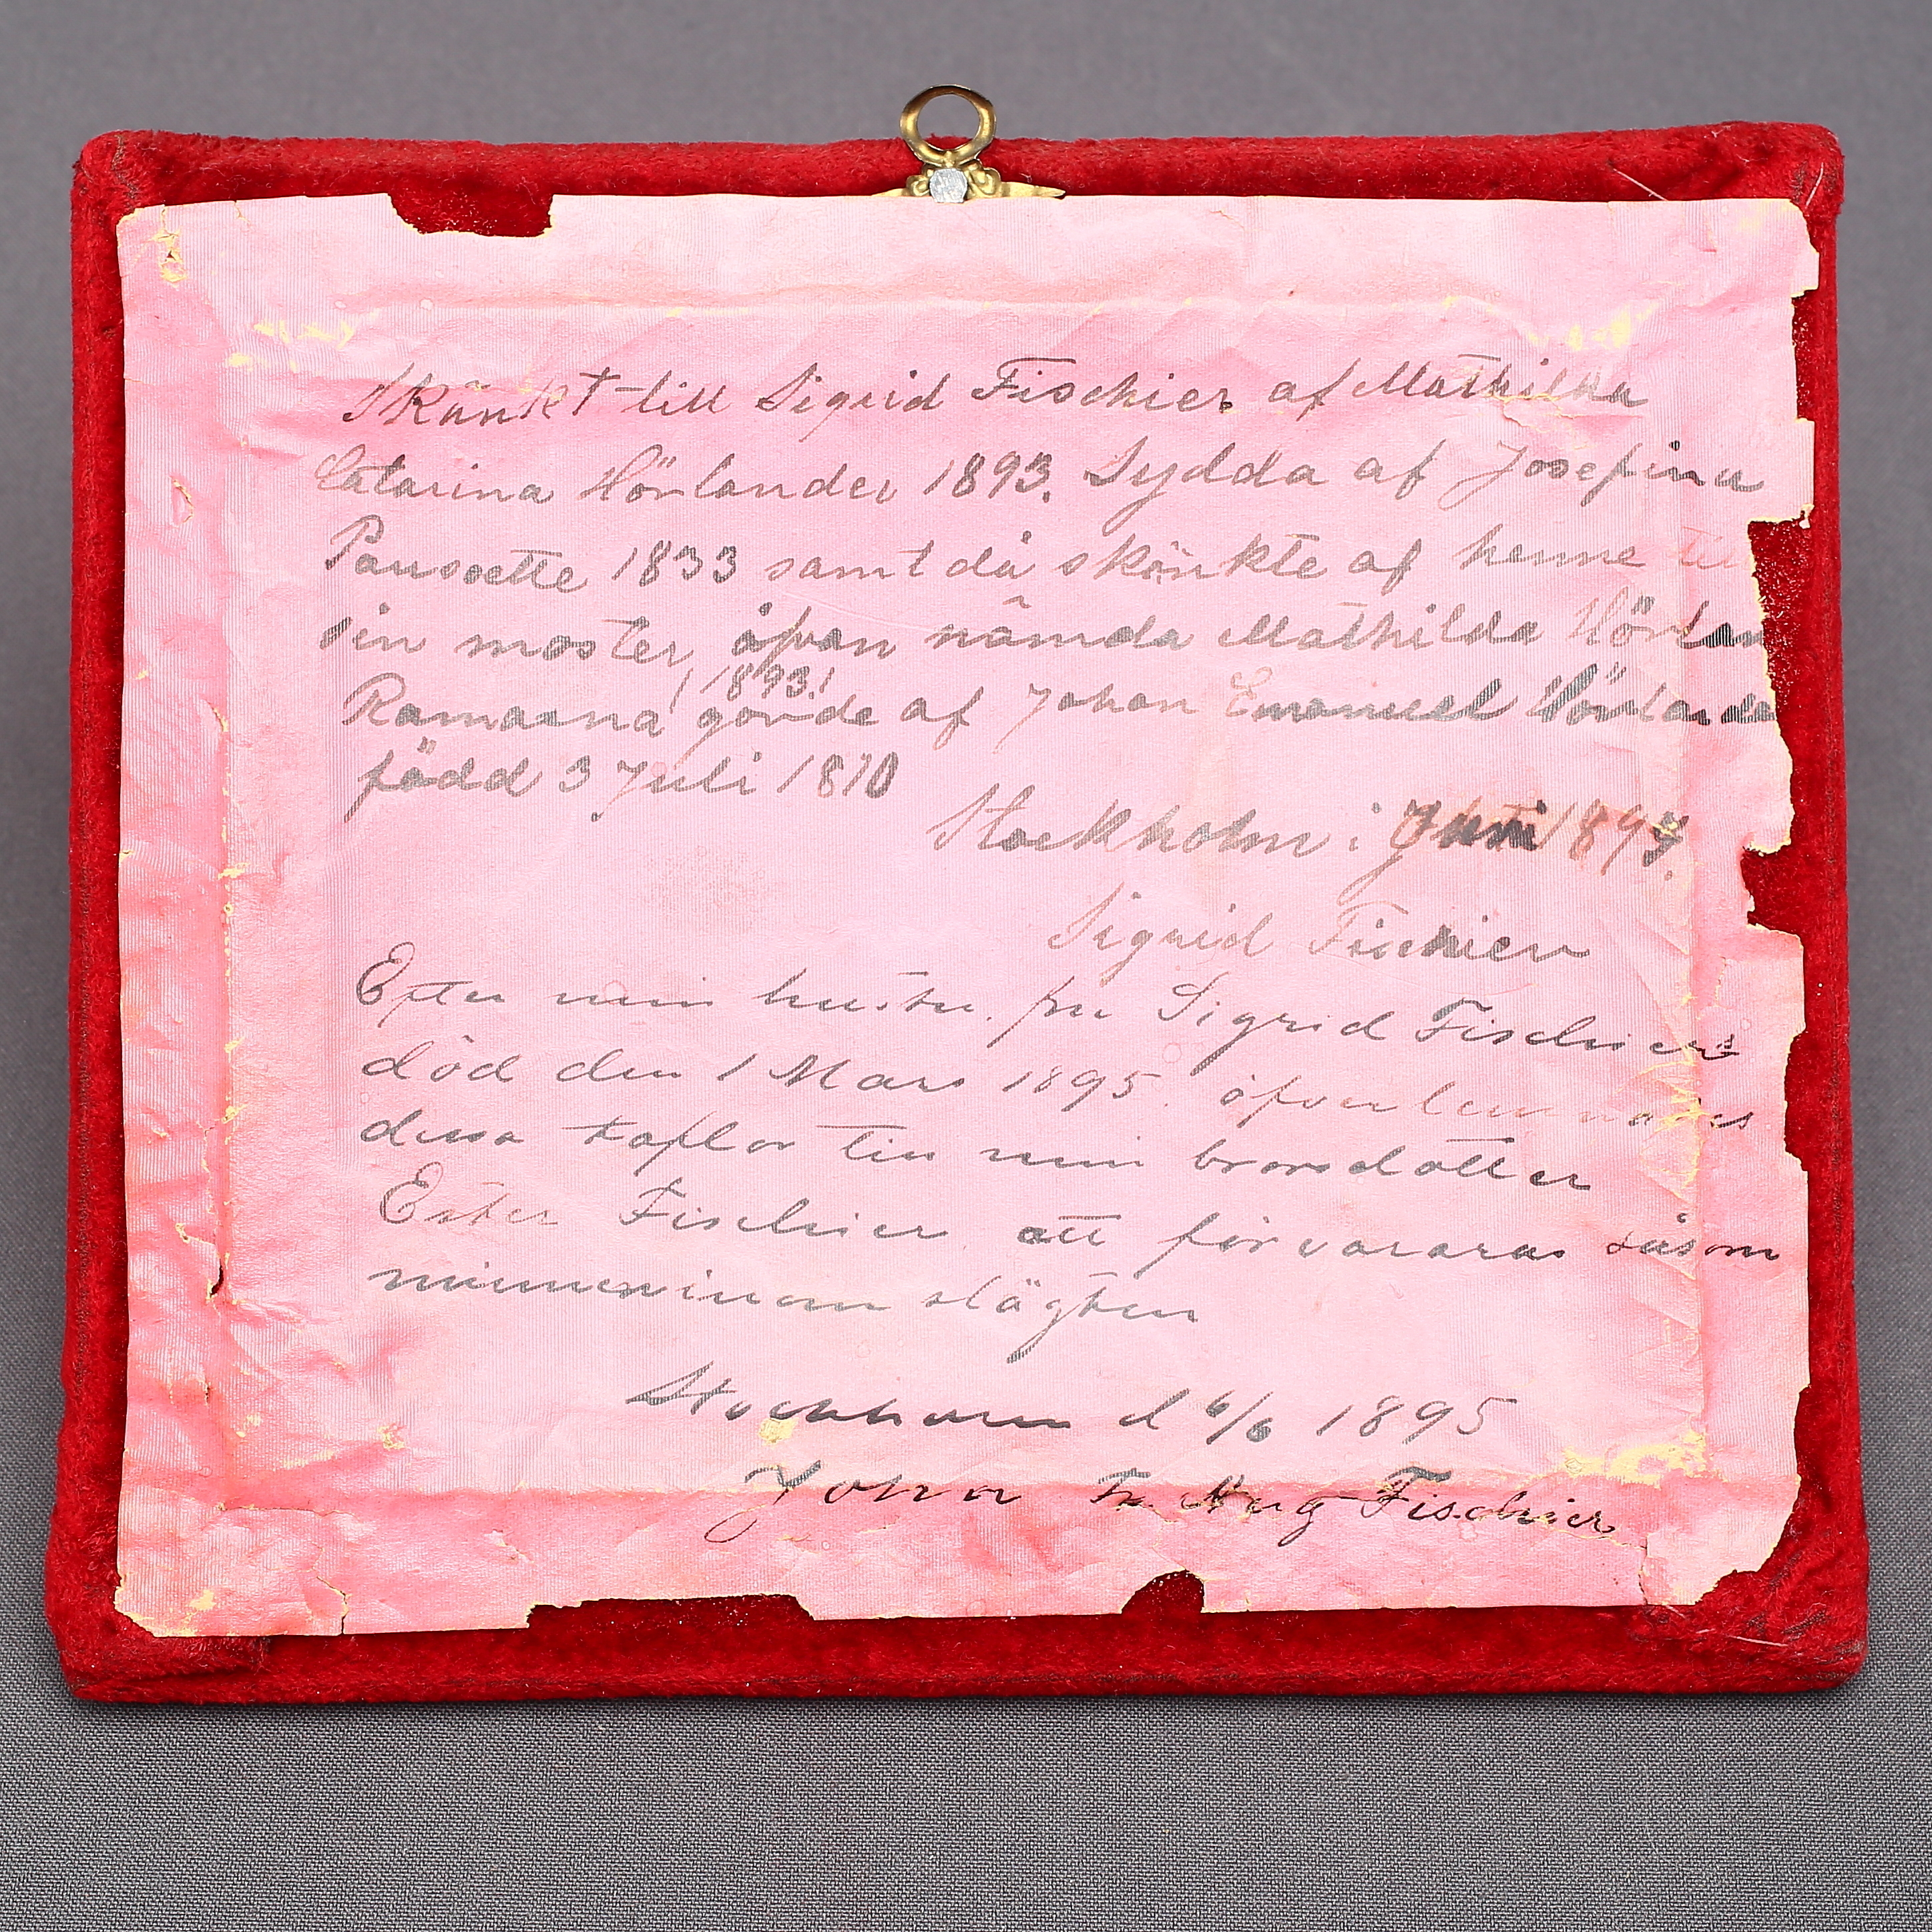 Skänkt till Sigrid Fischier af Mathilda
Catarina Hörlander 1893. Sydda af Josefina
Pousette 1833 samt då skänkte af henne till
sin moster, åfvan nämda Mathilda Hörlan
(1893!)
Ramarna gjorde af Johan Emanuel Hörlande
född 3 Juli 1810
Stockholm i Juni 1893.
Sigrid Fischier
Efter min hustru fru Sigrid Fischiers
död den 1 Mars 1895 öfverlemnades
dessa taflor till min brorsdotter
Ester Fischier att förvararas såsom
minnen inom slägten
Stockholm d 6/6 1895
John Fr Aug Fischier